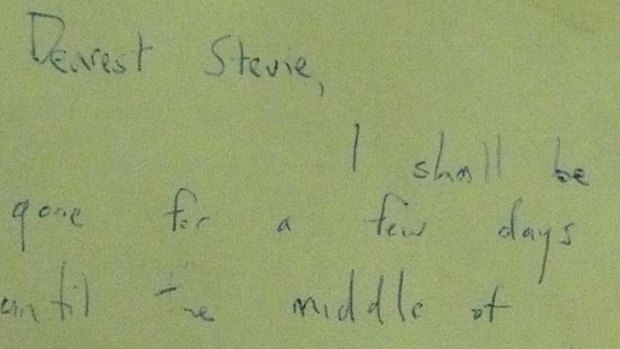 Dearest Stevie,
I shall be
gone for a few days
until the middle of